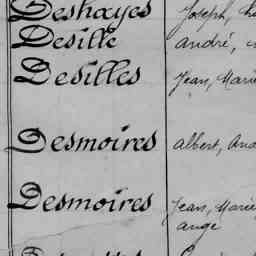 Deshayes Joseph,
Desille andré,
Desilles Jean, Marie
Desmoires albert, And
Desmoires Jean, Marie
ange